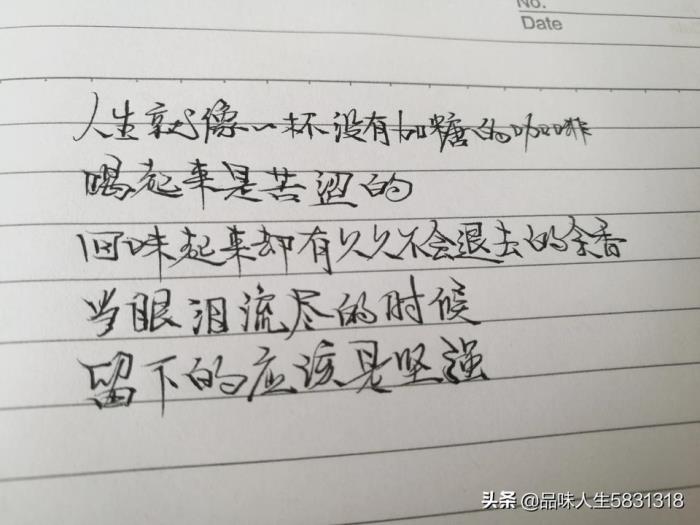 No.
Date
人生就像一杯没有加糖的咖啡
喝起来是苦涩的
回味起来却有久久不会退去的余香
当眼泪流尽的时候
留下的应该是坚强
头条 @品味人生5831318